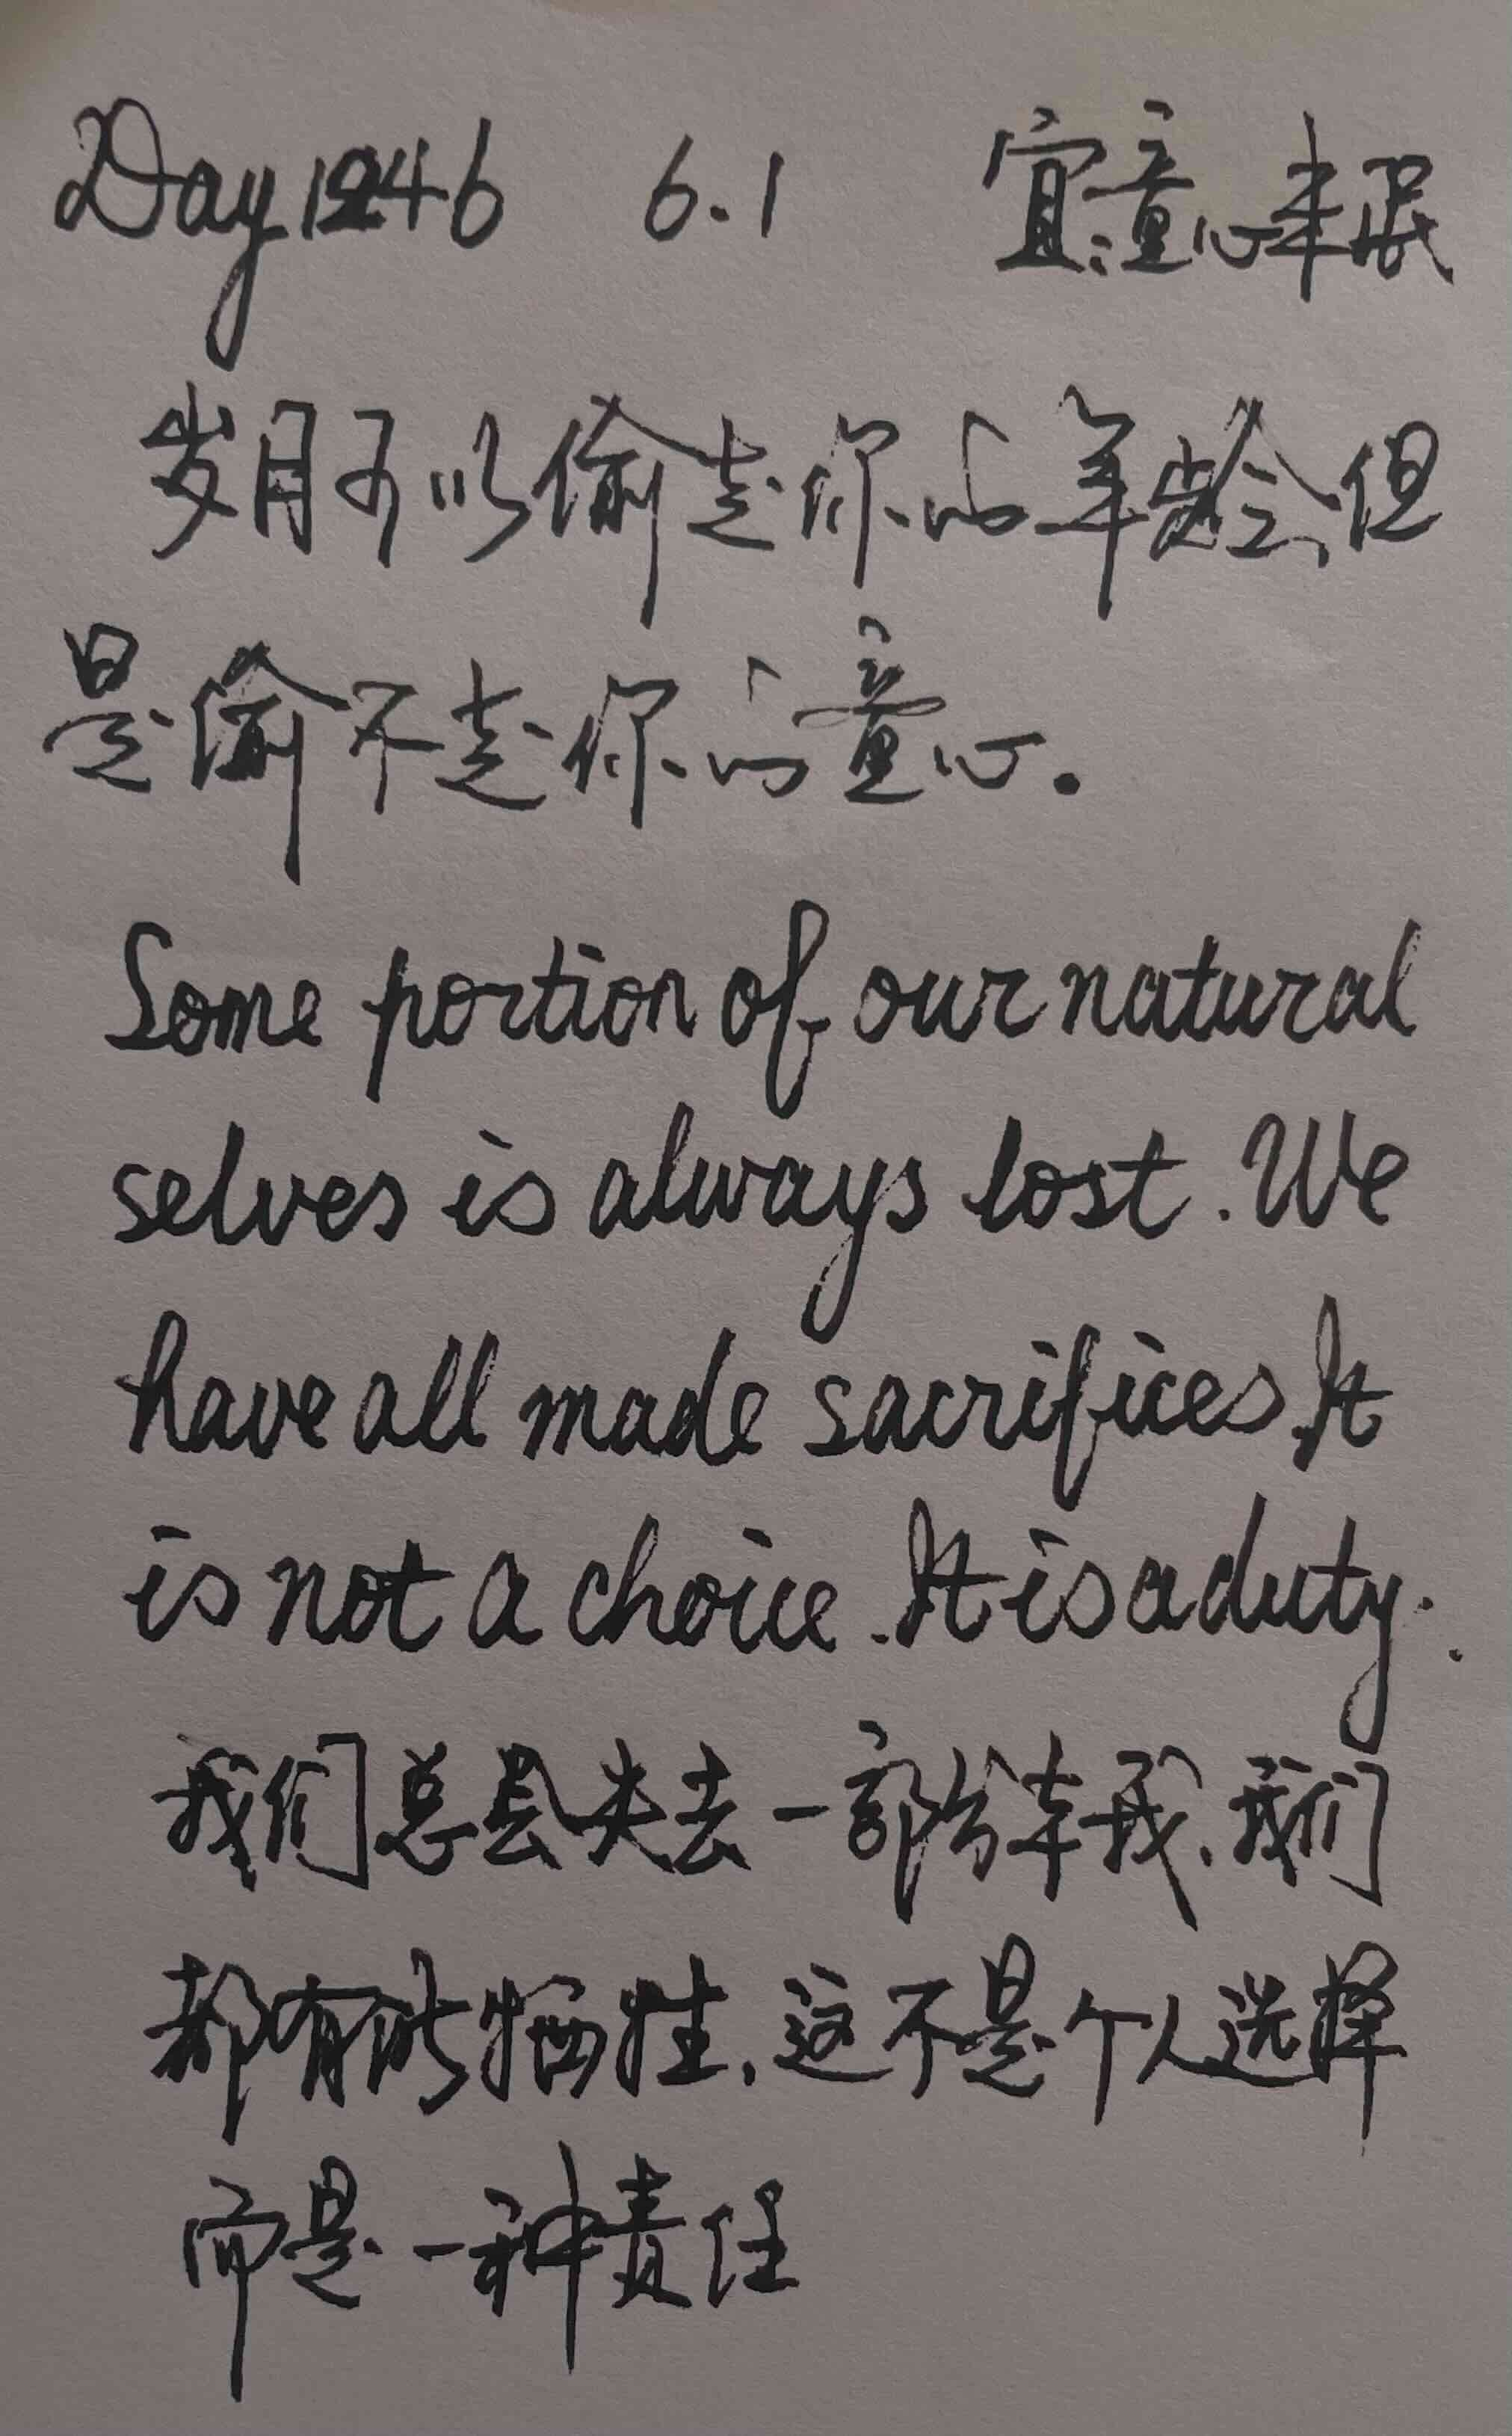 Day 1246 6.1 宜:童心未泯
岁月可以偷走你的年龄,但
是偷不走你的童心.
Some portion of our natural
selves is always lost. We
have all made sacrifices. It
is not a choice. It is a duty.
我们总会失去一部分本我、我们
都有所牺牲,这不是个人选择
而是一种责任